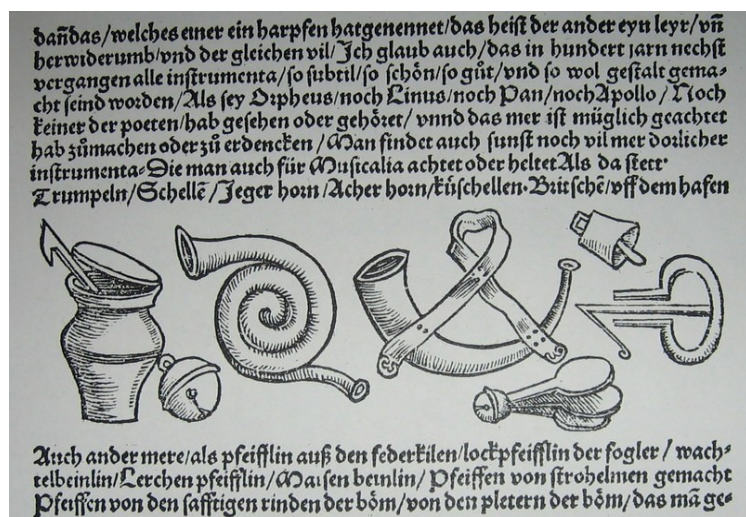 dañdas/welches einer ein harpfen hat genennet/das heist der ander eyn leyr/vñ
herwiderumb/vnd der gleichen vil/Jch glaub auch/das in hundert jarn nechst
vergangen alle instrumenta/so subtil/so schön/so gůt/vnd so wol gestalt gema⸗
cht seind worden/Als sey Orpheus/noch Linus/noch Pan/noch Apollo/Noch
keiner der poeten/hab gesehen oder gehöret/vnnd das mer ist müglich geachtet
hab zůmachen oder zů erdencken/Man findet auch sunst noch vil mer dorlicher
instrumenta/Die man auch für Musicalia achtet oder heltet Als da seett⸱
Trumpeln/Schellē/Jeger horn/Acher horn/kůschellen⸱Britschē/vff dem hafen
Auch ander mere/als pfeifflin auß den federkilen/lockpfeifflin der fogler/wach⸗
telbeinlin/Lerchen pfeifflin/Maisen beinlin/Pfeiffen von strohelmen gemacht
Pfeiffen von den safftigen rinden der böm/von den pletern der böm/das mā ge⸗